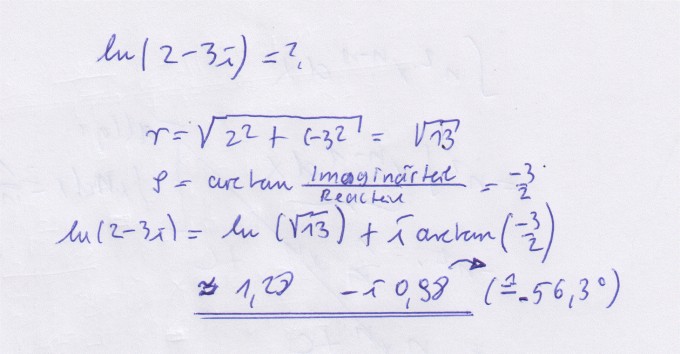 ln(2-3i) = ?
r = √(2² + (-3²) = √13
φ = arctan Imaginärteil / Realteil = -3/2
ln(2-3i) = ln (√13) + i arctan(-3/2)
≈ 1,28 - i 0,98 (≙ -56,3°)